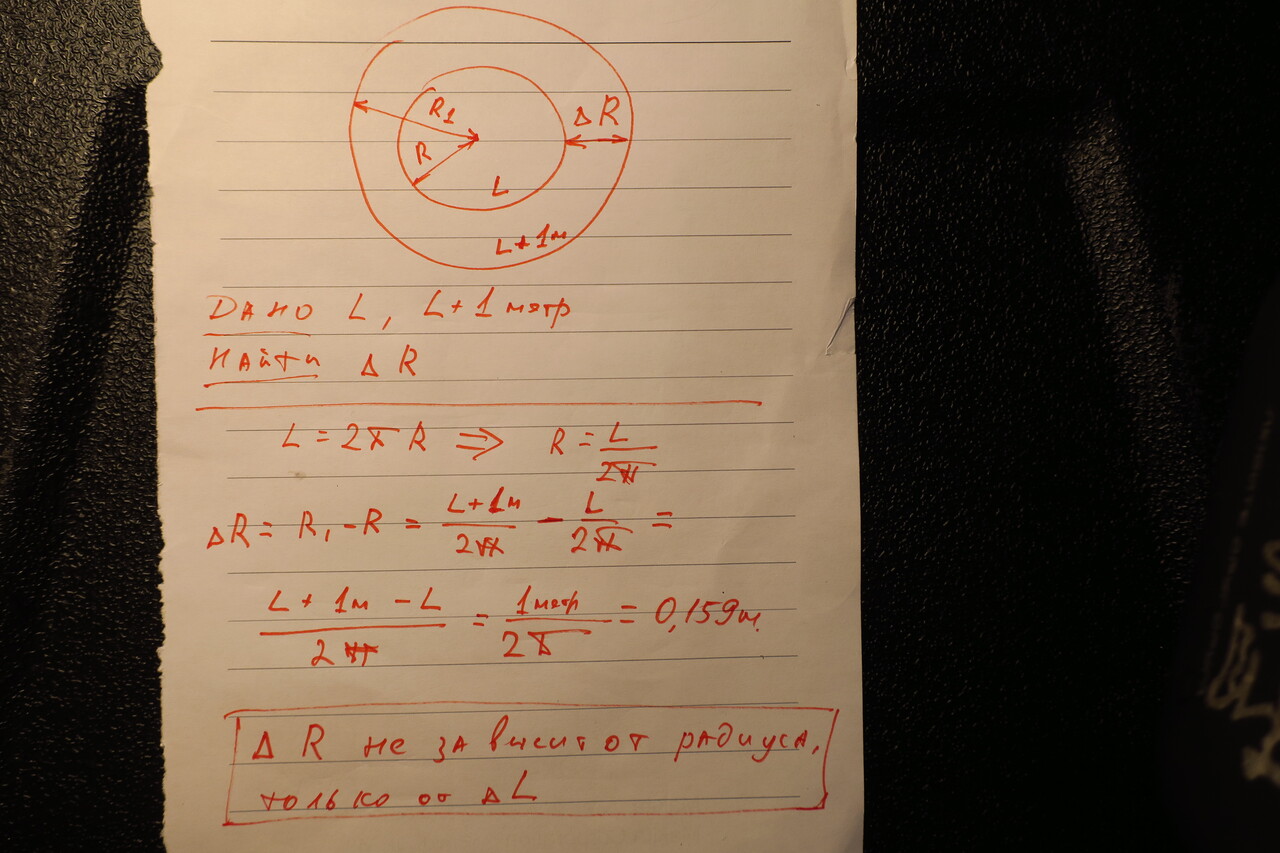 R1
ΔR
R
L
L+1м
Дано L, L+1 метр
Найти ΔR
L = 2π R ⇒ R = L/2π
ΔR = R1 - R = L+1м/2π - L/2π =
L + 1м - L/2π = 1 метр/2π = 0,159 м.
ΔR не зависит от радиуса,
только от ΔL